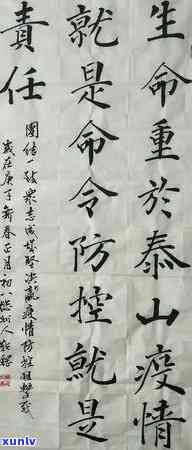 生命重於泰山疫情
就是命令防控就是
責任
團结一致眾志成城堅决贏疫情防控阻擊戰
歲在庚子新春正月初一
xunlv